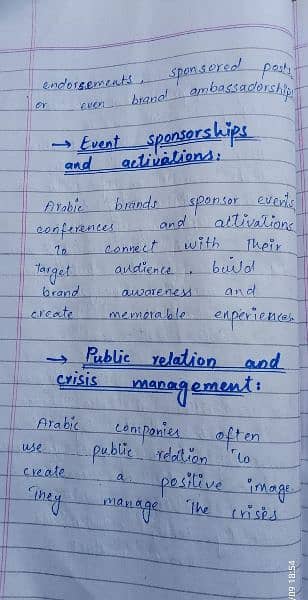 endorsements, sponsored posts
or even brand ambassadorships
→ Event sponsorships
and activations:
Arabic brands sponsor events,
conferences and activations
to connect with their
target audience, build
brand awareness and
create memorable experiences
→ Public relation and
crisis management:
Arabic companies often
use public relation to
create a positive image.
They manage the crises
/09 18:54